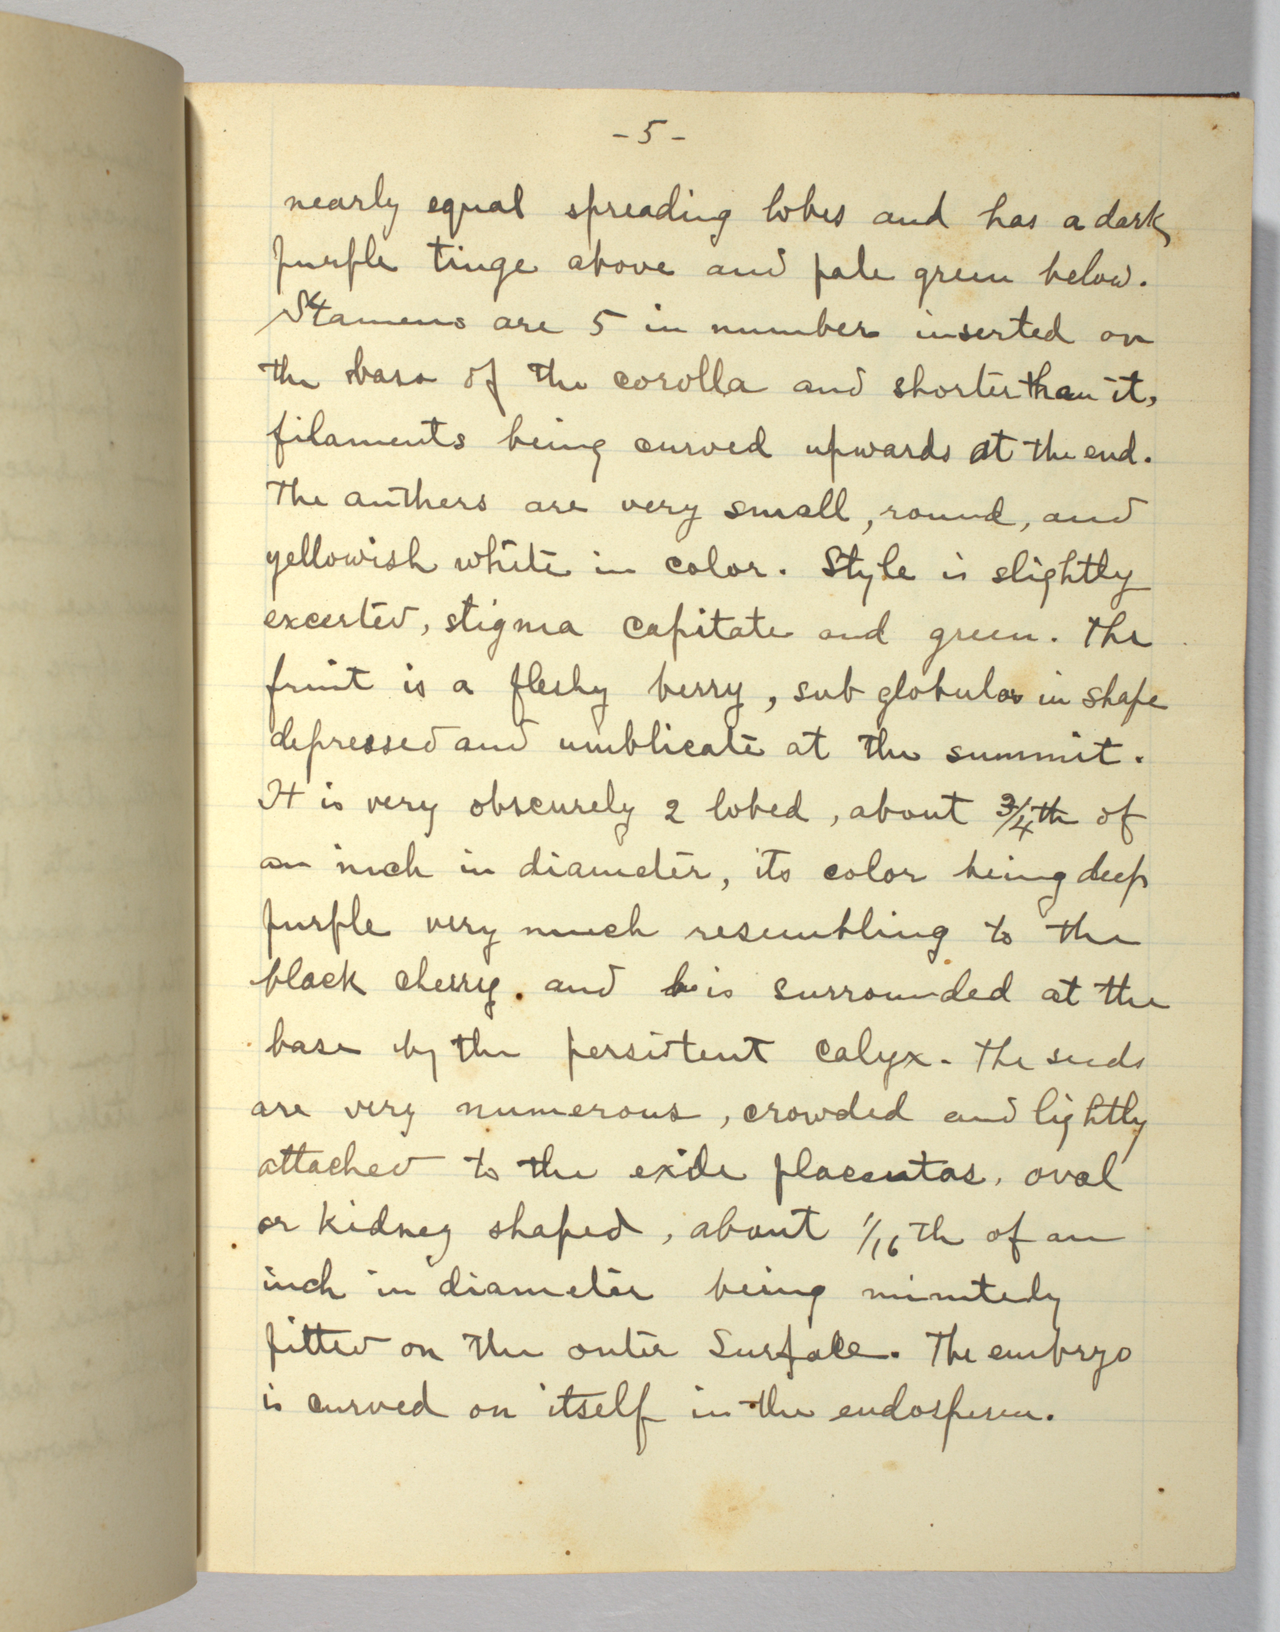 -5-
nearly equal spreading lobes and has a dark
purple tinge above and pale green below.
Stamens are 5 in number inserted on
the base of the corolla and shorter than it,
filaments being curved upwards at the end.
The anthers are very small, round, and
yellowish white in color. Style is slightly
excerted, stigma capitate and green. The
fruit is a fleshy berry, sub globular in shape
depressed and umblicate at the summit.
It is very obscurely 2 lobed, about 3/4th of
an inch in diameter, its color being deep
purple very much resembling to the
black cherry. and is surrounded at the
base by the persistent calyx. The seeds
are very numerous, crowded and lightly
attached to the exile placentas, oval
or kidney shaped, about 1/16 th of an
inch in diameter being minutely
pitted on the outer Surface. The embryo
is curved on itself in the endosperm.